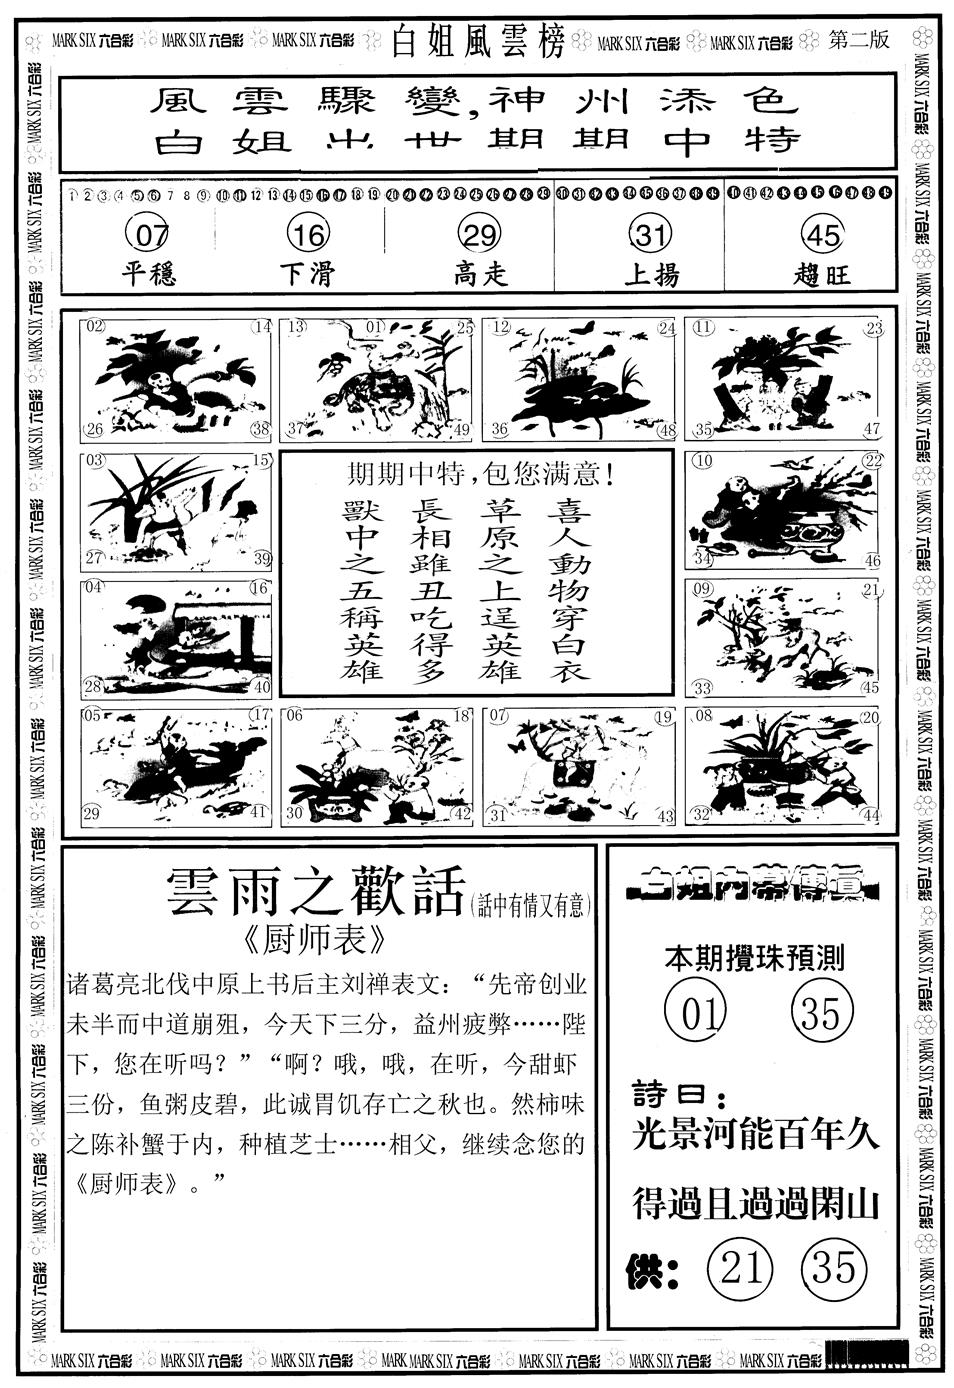 MARK SIX 六合彩 MARK SIX 六合彩 MARK SIX 六合彩 白姐風雲榜 MARK SIX 六合彩 MARK SIX 六合彩 第二版
風雲驟變,神州添色
白姐出世期期中特
1 2 3 4 5 6 7 8 9 10 11 12 13 14 15 16 17 18 19 20 21 22 23 24 25 26 27 28 29 30 31 32 33 34 35 36 37 38 39 40 41 42 43 44 45 46 47 48 49
07 16 29 31 45
平穩 下滑 高走 上揚 趨旺
02 14 13 01 25 12 24 11 23
26 38 37 49 36 48 35 47
03 15
27 39
04 16
28 40
期期中特,包您满意!
喜人動物穿白衣
草原之上逞英雄
長相雖丑吃得多
獸中之五稱英雄
10 22
34 46
09 21
33 45
05 17 06 18 07 19 08 20
29 41 30 42 31 43 32 44
雲雨之歡話(話中有情又有意)
《厨师表》
诸葛亮北伐中原上书后主刘禅表文：“先帝创业
未半而中道崩殂，今天下三分，益州疲弊……陛
下，您在听吗？”“啊？哦，哦，在听，今甜虾
三份，鱼粥皮碧，此诚胃饥存亡之秋也。然柿味
之陈补蟹于内，种植芝士……相父，继续念您的
《厨师表》。”
白姐内幕傳真
本期攪珠預測
01 35
詩曰：
光景河能百年久
得過且過過閑山
供： 21 35
MARK SIX 六合彩 MARK SIX 六合彩 MARK SIX 六合彩 MARK MARK SIX 六合彩 MARK SIX 六合彩 MARK SIX 六合彩 MARK SIX 六合彩